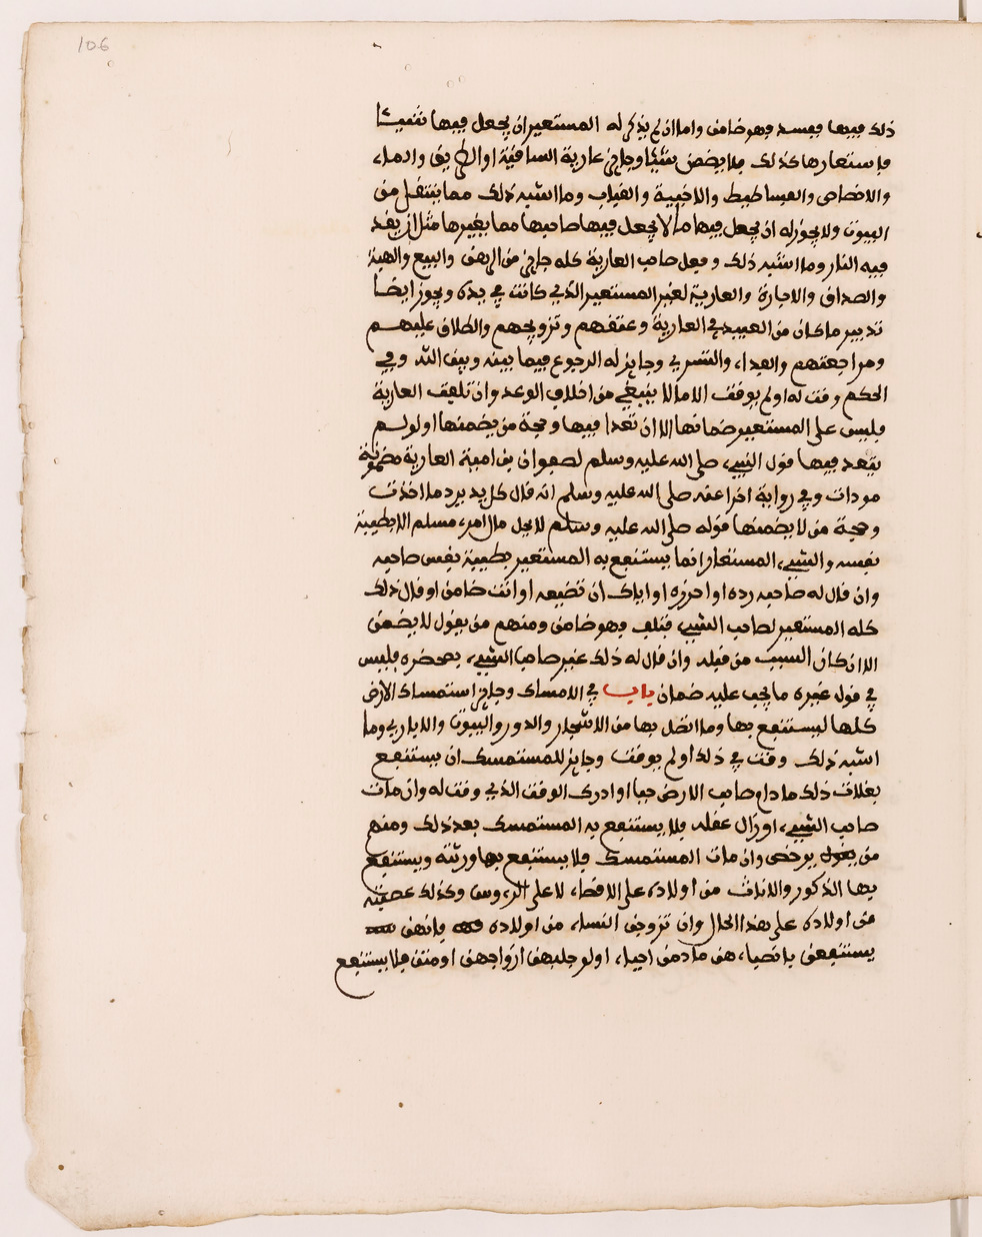 106
ذلك فيها ففسد فهو ضامن واما ان لم يذكر له المستعير ان يجعل فيها شيئا
فاستعارها كذلك فلا يضمن شيئا وجائز عارية الساقية او الطريق والماء
والاخصاص والفساطيط والاخبية والقباب وما اشبه ذلك مما ينتقل من
البيوت ولا يجوز له ان يجعل فيها ما لا يجعل فيها صاحبها مما يغيرها مثل ان يقد
فيه النار وما اشبه ذلك وفعل صاحب العارية كله جائز من الرهن والبيع والهبة
والصداق والاجارة والعارية لغير المستعير الذي كانت في يده ويجوز ايضا
تدبير ما كان من العبيد في العارية وعتقهم وتزويجهم والطلاق عليهم
ومراجعتهم والفداء والتسري وجائز له الرجوع فيما بينه وبين الله وفي
الحكم وقت له او لم يوقت الا ما لا ينبغي من اخلاف الوعد وان تلفت العارية
فليس على المستعير ضمانها الا ان تعدا فيها وحجة من يضمنها ولو لم
يتعد فيها قول النبيء صلى الله عليه وسلم لصفوان بن امية العارية مضمونة
مودات وفي رواية اخرا عنه صلى الله عليه وسلم انه قال كل يد يرد ما اخذت
وحجة من لا يضمنها قوله صلى الله عليه وسلم لا يحل مال امرء مسلم الا بطيبة
نفسه والشيء المستعار انما يستنفع به المستعير بطيبة نفس صاحبه
وان قال له صاحبه رده او احرزه او اياك ان تضيعه او انت ضامن او قال ذلك
كله المستعير لصاحب الشيء فتلف فهو ضامن ومنهم من يقول لا يضمن
الا ان كان السبب من قبله وان قال له ذلك غير صاحب الشيء بمحضره فليس
في قول غيره ما يجب عليه ضمان باب في الامساك وجائز استمساك الارض
كلها ليستنفع بها وما اتصل بها من الاشجار والدور والبيوت والابار وما
اشبه ذلك وقت في ذلك او لم يوقت وجائز للمستمسك ان يستنفع
بغلات ذلك ما دام صاحب الارض حيا او ادرك الوقت الذي وقت له وان مات
صاحب الشيء او زال عقله فلا يستنفع به المستمسك بعد ذلك ومنهم
من يقول يرخص وان مات المستمسك فلا يستنفع بها ورثته ويستنفع
بها الذكور والاناث من اولاده على الاقطاء لا على الرءوس وكذلك عصبته
من اولاده على هذا الحال وان تزوجن النساء من اولاده فانهن
يستنفعن بانصباءهن ما دمن احياء او لو جلبهن ازواجهن او متن فلا يستنفع